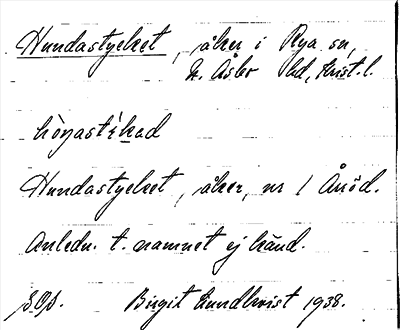 Hundastycket, åker i Rya sn,
N. Åsbo hd, Krist. l.
Hundastycket, åker, nr 1 Åröd.
Anledn. t. namnet ej känd.
Birgit Lundkvist 1938.